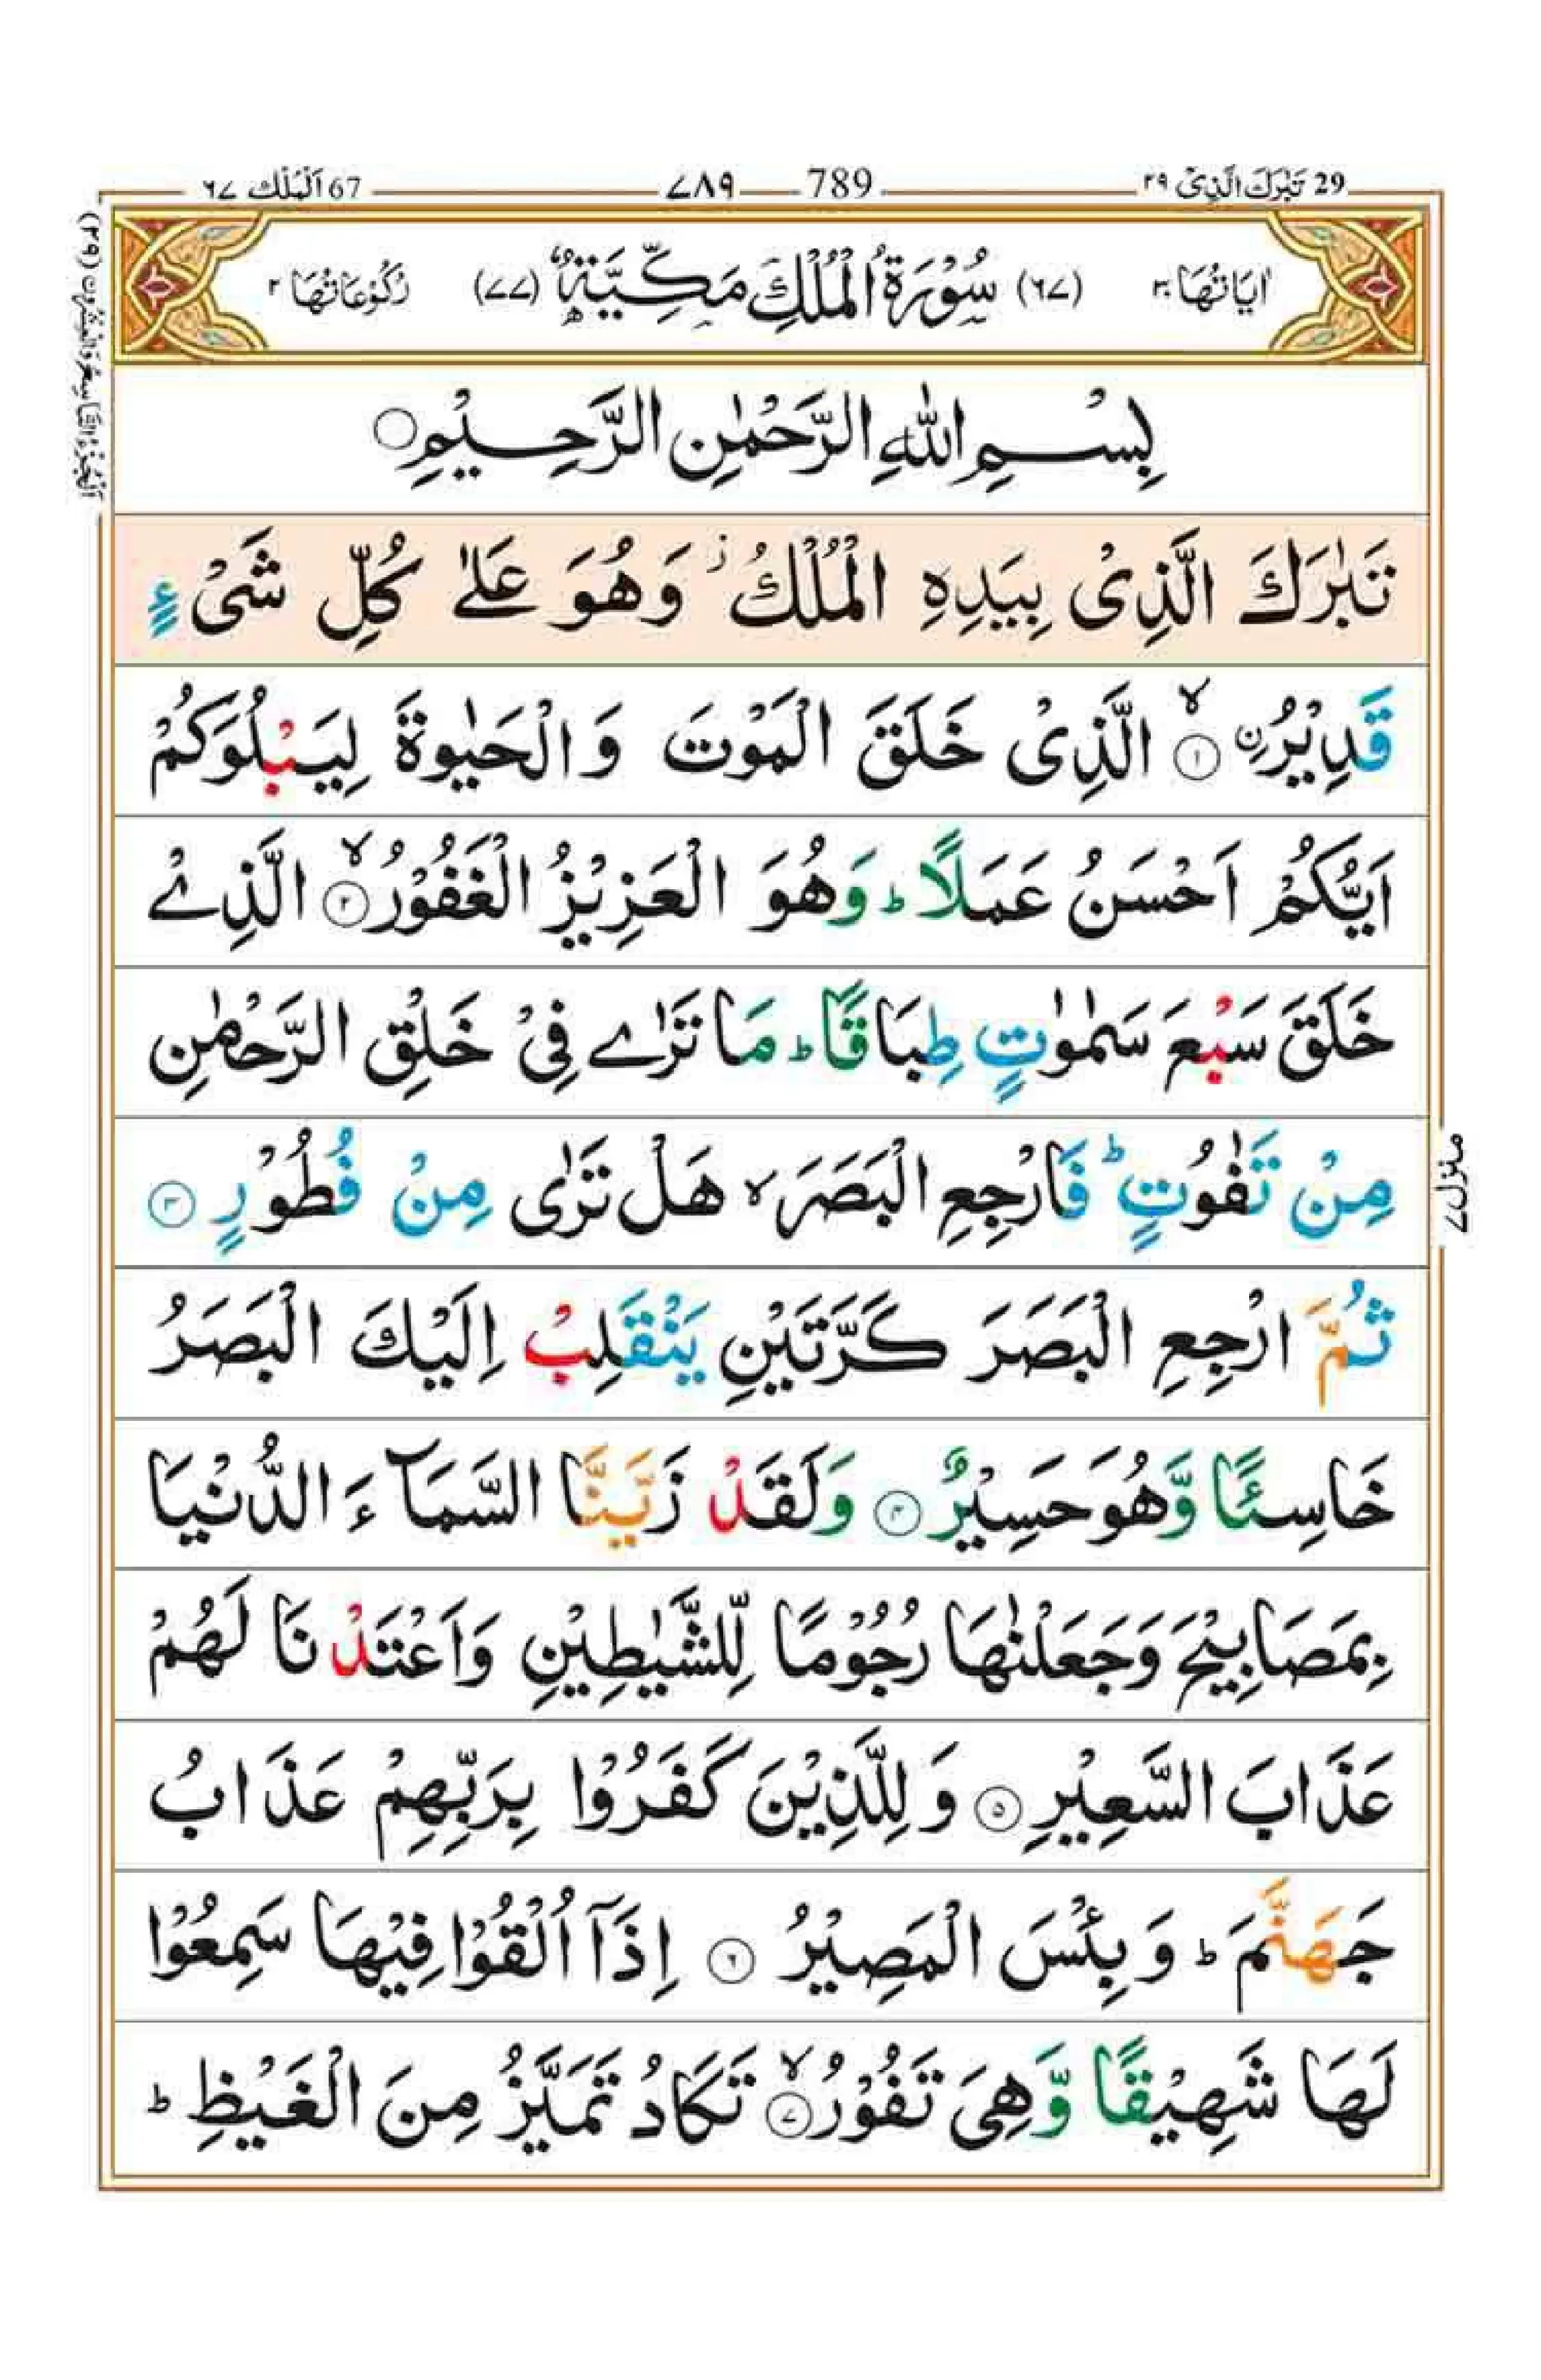 29 تَبٰرَكَ الَّذِیْ ٢٩
789 ٧٨٩
67 اَلْمُلْك ٦٧
اٰيَاتُهَا ٣٠ (٦٧) سُوْرَةُ الْمُلْكِ مَكِّيَّةٌ (٧٧) رُكُوْعَاتُهَا ٢
بِسْمِ اللهِ الرَّحْمٰنِ الرَّحِيْمِ
تَبٰرَكَ الَّذِیْ بِيَدِهِ الْمُلْكُ ز وَهُوَ عَلٰى كُلِّ شَیْءٍ
قَدِيْرُ ۨ ﴿١﴾ ۙ الَّذِیْ خَلَقَ الْمَوْتَ وَالْحَيٰوةَ لِيَبْلُوَكُمْ
اَيُّكُمْ اَحْسَنُ عَمَلًا ؕ وَهُوَ الْعَزِيْزُ الْغَفُوْرُ ﴿٢﴾ ۙ الَّذِیْ
خَلَقَ سَبْعَ سَمٰوٰتٍ طِبَاقًا ؕ مَا تَرٰى فِیْ خَلْقِ الرَّحْمٰنِ
مِنْ تَفٰوُتٍ ؕ فَارْجِعِ الْبَصَرَ ۙ هَلْ تَرٰى مِنْ فُطُوْرٍ ﴿٣﴾
ثُمَّ ارْجِعِ الْبَصَرَ كَرَّتَيْنِ يَنْقَلِبْ اِلَيْكَ الْبَصَرُ
خَاسِئًا وَّهُوَ حَسِيْرٌ ﴿٤﴾ وَلَقَدْ زَيَّنَّا السَّمَآءَ الدُّنْيَا
بِمَصَابِيْحَ وَجَعَلْنٰهَا رُجُوْمًا لِّلشَّيٰطِيْنِ وَاَعْتَدْنَا لَهُمْ
عَذَابَ السَّعِيْرِ ﴿٥﴾ وَلِلَّذِيْنَ كَفَرُوْا بِرَبِّهِمْ عَذَابُ
جَهَنَّمَ ؕ وَبِئْسَ الْمَصِيْرُ ﴿٦﴾ اِذَآ اُلْقُوْا فِيْهَا سَمِعُوْا
لَهَا شَهِيْقًا وَّهِیَ تَفُوْرُ ﴿٧﴾ ۙ تَكَادُ تَمَيَّزُ مِنَ الْغَيْظِ ؕ
اَلْجُزْءُ التَّاسِعُ وَالْعِشْرُوْنَ (٢٩)
منزل ٧